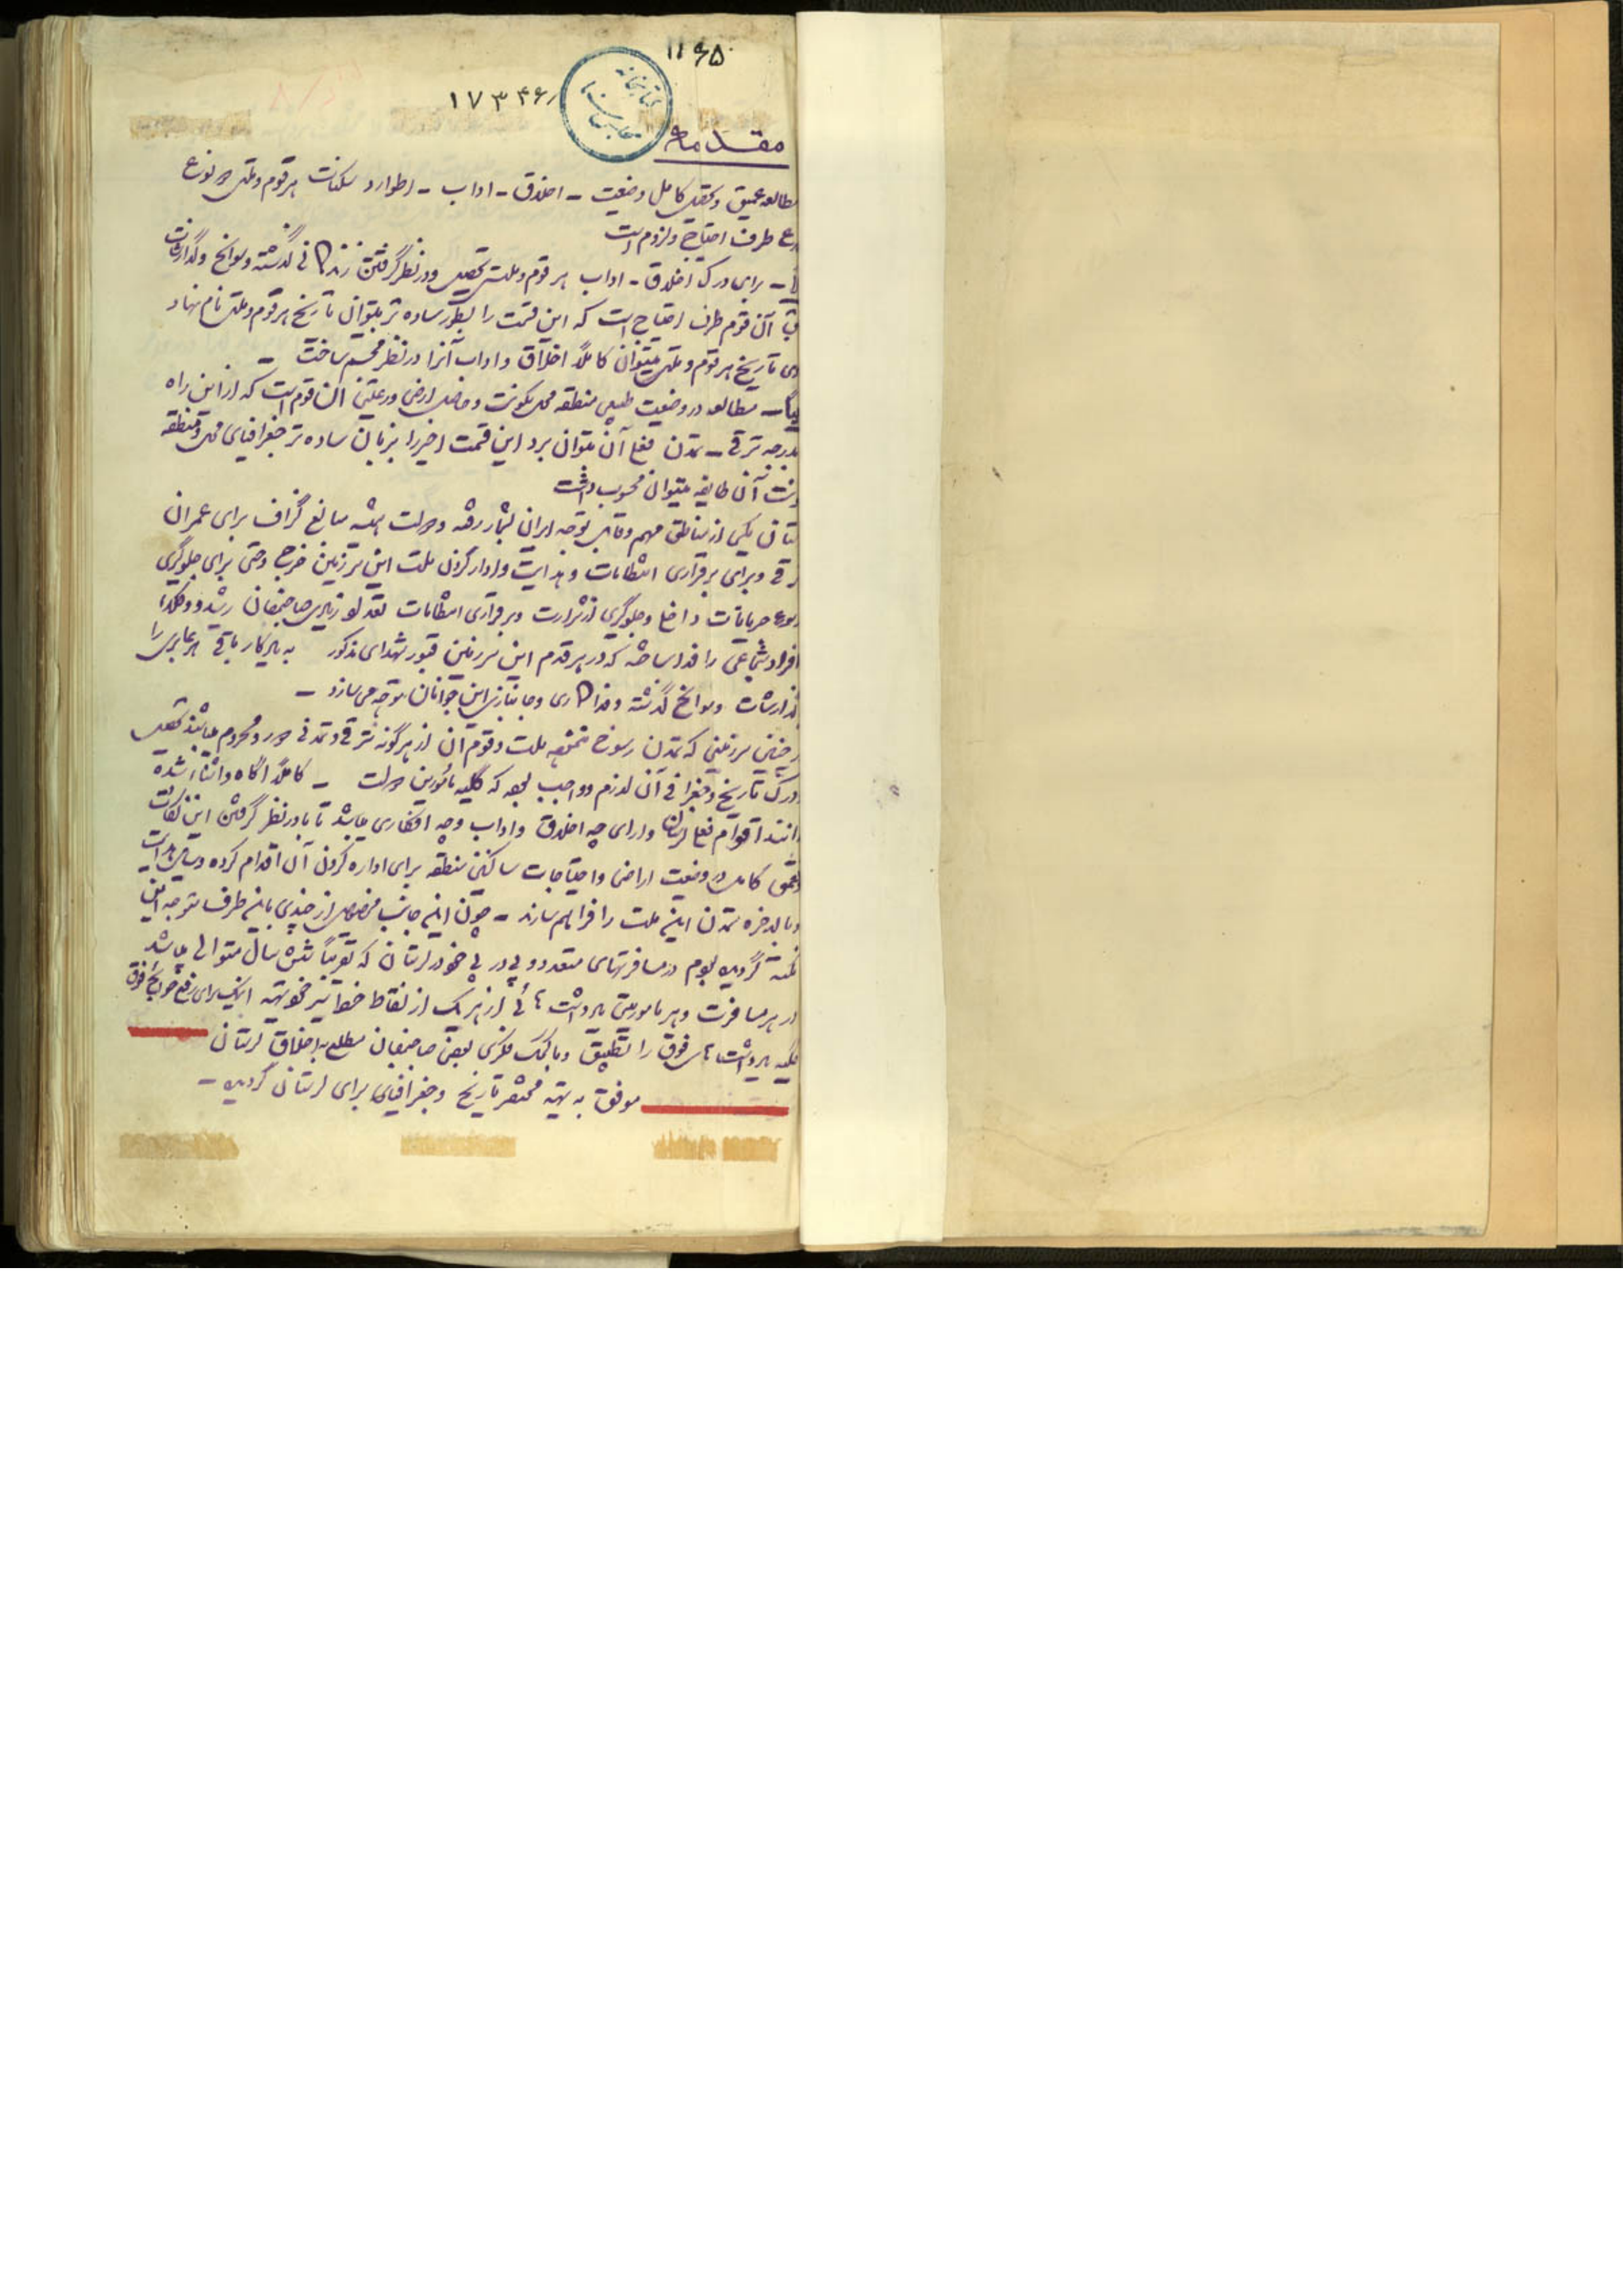 ۱۱۶۵
۱۷۳۴۶
کتابخانه مجلس سنا
مقدمه
مطالعه عمیق و تحصیل کامل وضعیت - اخلاق - اداب - اطوار و سکنات هر قوم و ملتی دو نوع
طرف احتیاج و لزوم است
برای درک اخلاق - اداب هر قوم و ملت تحصیل و در نظر گرفتن زندگانی گذشته و سوانح و گذارشات
آن قوم طرف احتیاج است که این قسمت را بطور ساده تر میتوان تاریخ هر قوم و ملتی نام نهاد
تاریخ هر قوم و ملتی میتوان کاملاً اخلاق و اداب آنرا در نظر مجسم ساخت -
مطالعه در وضعیت طبیعی منطقه محل سکونت و حاصل ارضی و رعیتی آن قوم است که از این راه
بدرجه ترقی - تمدن فعلی آن میتوان برد این قسمت اخیر را بزبان ساده تر جغرافیای محل و منطقه
آن طایفه میتوان محسوب داشت
یکی از مناطق مهم و قابل توجه ایران بشمار رفته و دولت همیشه مبالغ گزاف برای عمران
و برای برقراری انتظامات و هدایت و ادار کردن ملت این سرزمین خرج و حتی برای جلوگیری
داخلی و جلوگیری از شرارت و برقراری انتظامات تعداد زیادی صاحبمنصبان رشید و فداکار
افراد شجاعی را فدا ساخته که در هر قدم این سرزمین قبور شهدای مذکور به یادگار باقی هر عابری را
گذارشات و سوانح گذشته و فداکاری و جانبازی این جوانان متوجه می سازد -
چنین سرزمینی که تمدن رسوخ ننموده ملت و قوم آن از هر گونه ترقی و تمدنی دور و محروم میباشند تحصیل
درک تاریخ و جغرافی آن لازم و واجب بوده که کلیه مأمورین دولت - کاملاً آگاه و آشنا شده
اقوام فعلی لرستان دارای چه اخلاق و اداب و چه افکاری میباشد تا با در نظر گرفتن این نکات
تعمق کامل در وضعیت اراضی و احتیاجات ساکنین منطقه برای اداره کردن آن اقدام کرده وسایل هدایت
و بالاخره تمدن این ملت را فراهم سازند - چون اینجانب مخصوصاً از چندی باینطرف متوجه این
نکته گردیده بودم در مسافرتهای متعدد و پی در پی خود در لرستان که تقریباً شش سال متوالی میباشد
در هر مسافرت و هر ماموریتی یادداشت هائی از هر یک از نقاط تهیه اینک برای رفع حوایج فوق
کلیه یادداشت های فوق را تطبیق و با کمک فکری بعضی صاحبمنصبان مطلع به اخلاق لرستان
موفق به تهیه مختصر تاریخ و جغرافیای برای لرستان گردید -